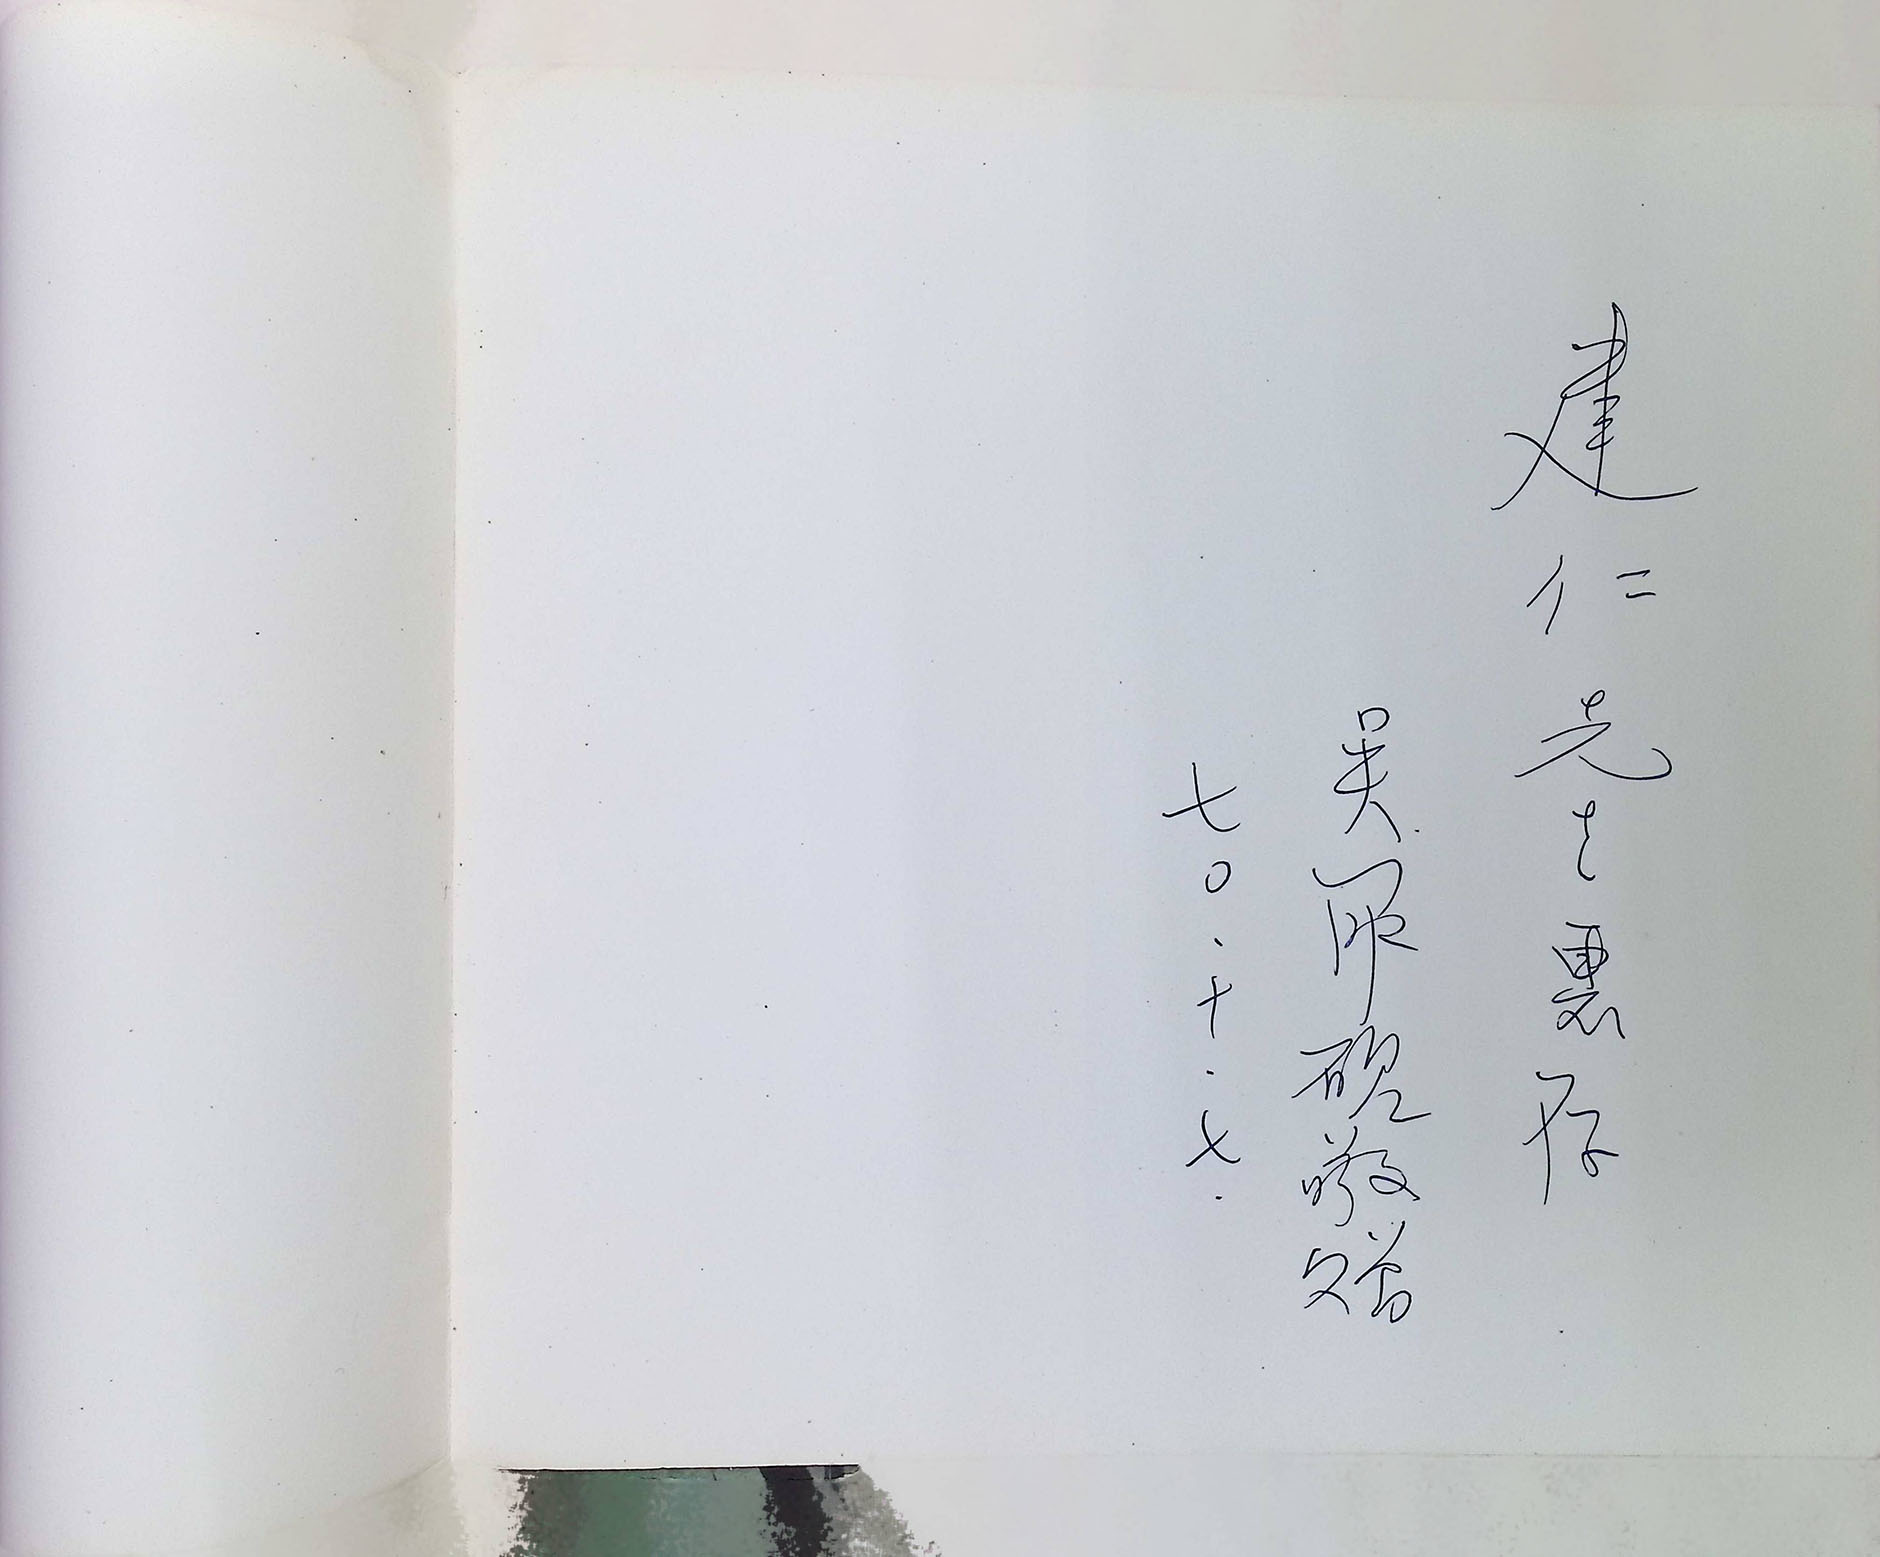 建仁先生惠存
吳師硯敬贈
七〇.十.七.